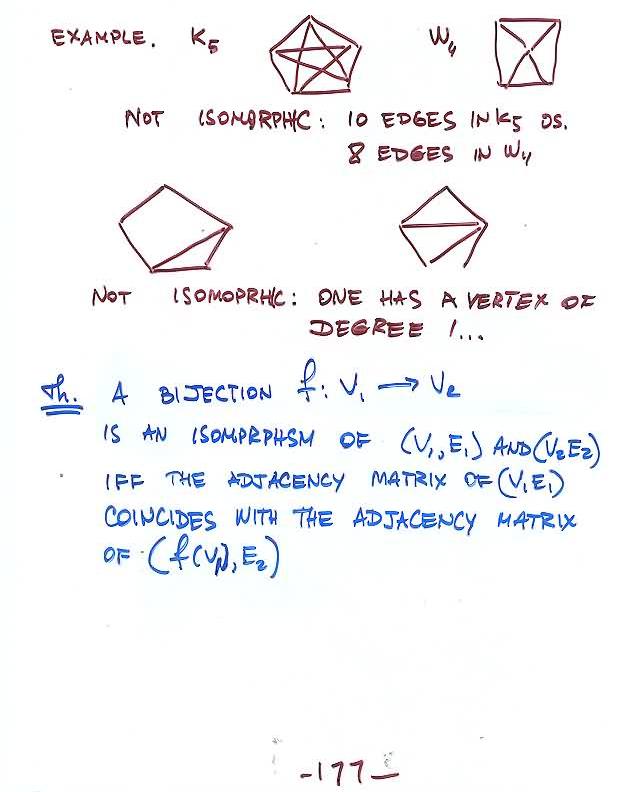 EXAMPLE. K5 W4
NOT ISOMORPHIC: 10 EDGES IN K5 VS.
8 EDGES IN W4
NOT ISOMOPRHIC: ONE HAS A VERTEX OF
DEGREE 1...
Th. A BIJECTION f: V1 → V2
IS AN ISOMPRPHSM OF (V1, E1) AND (V2 E2)
IFF THE ADJACENCY MATRIX OF (V1 E1)
COINCIDES WITH THE ADJACENCY MATRIX
OF (f(V1), E2)
-177-